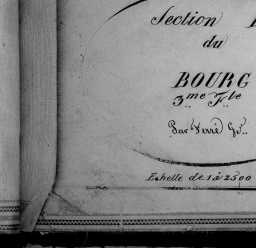 Section
du
BOURG
3.me F.lle
Par Verré
Echelle de 1 à 2500